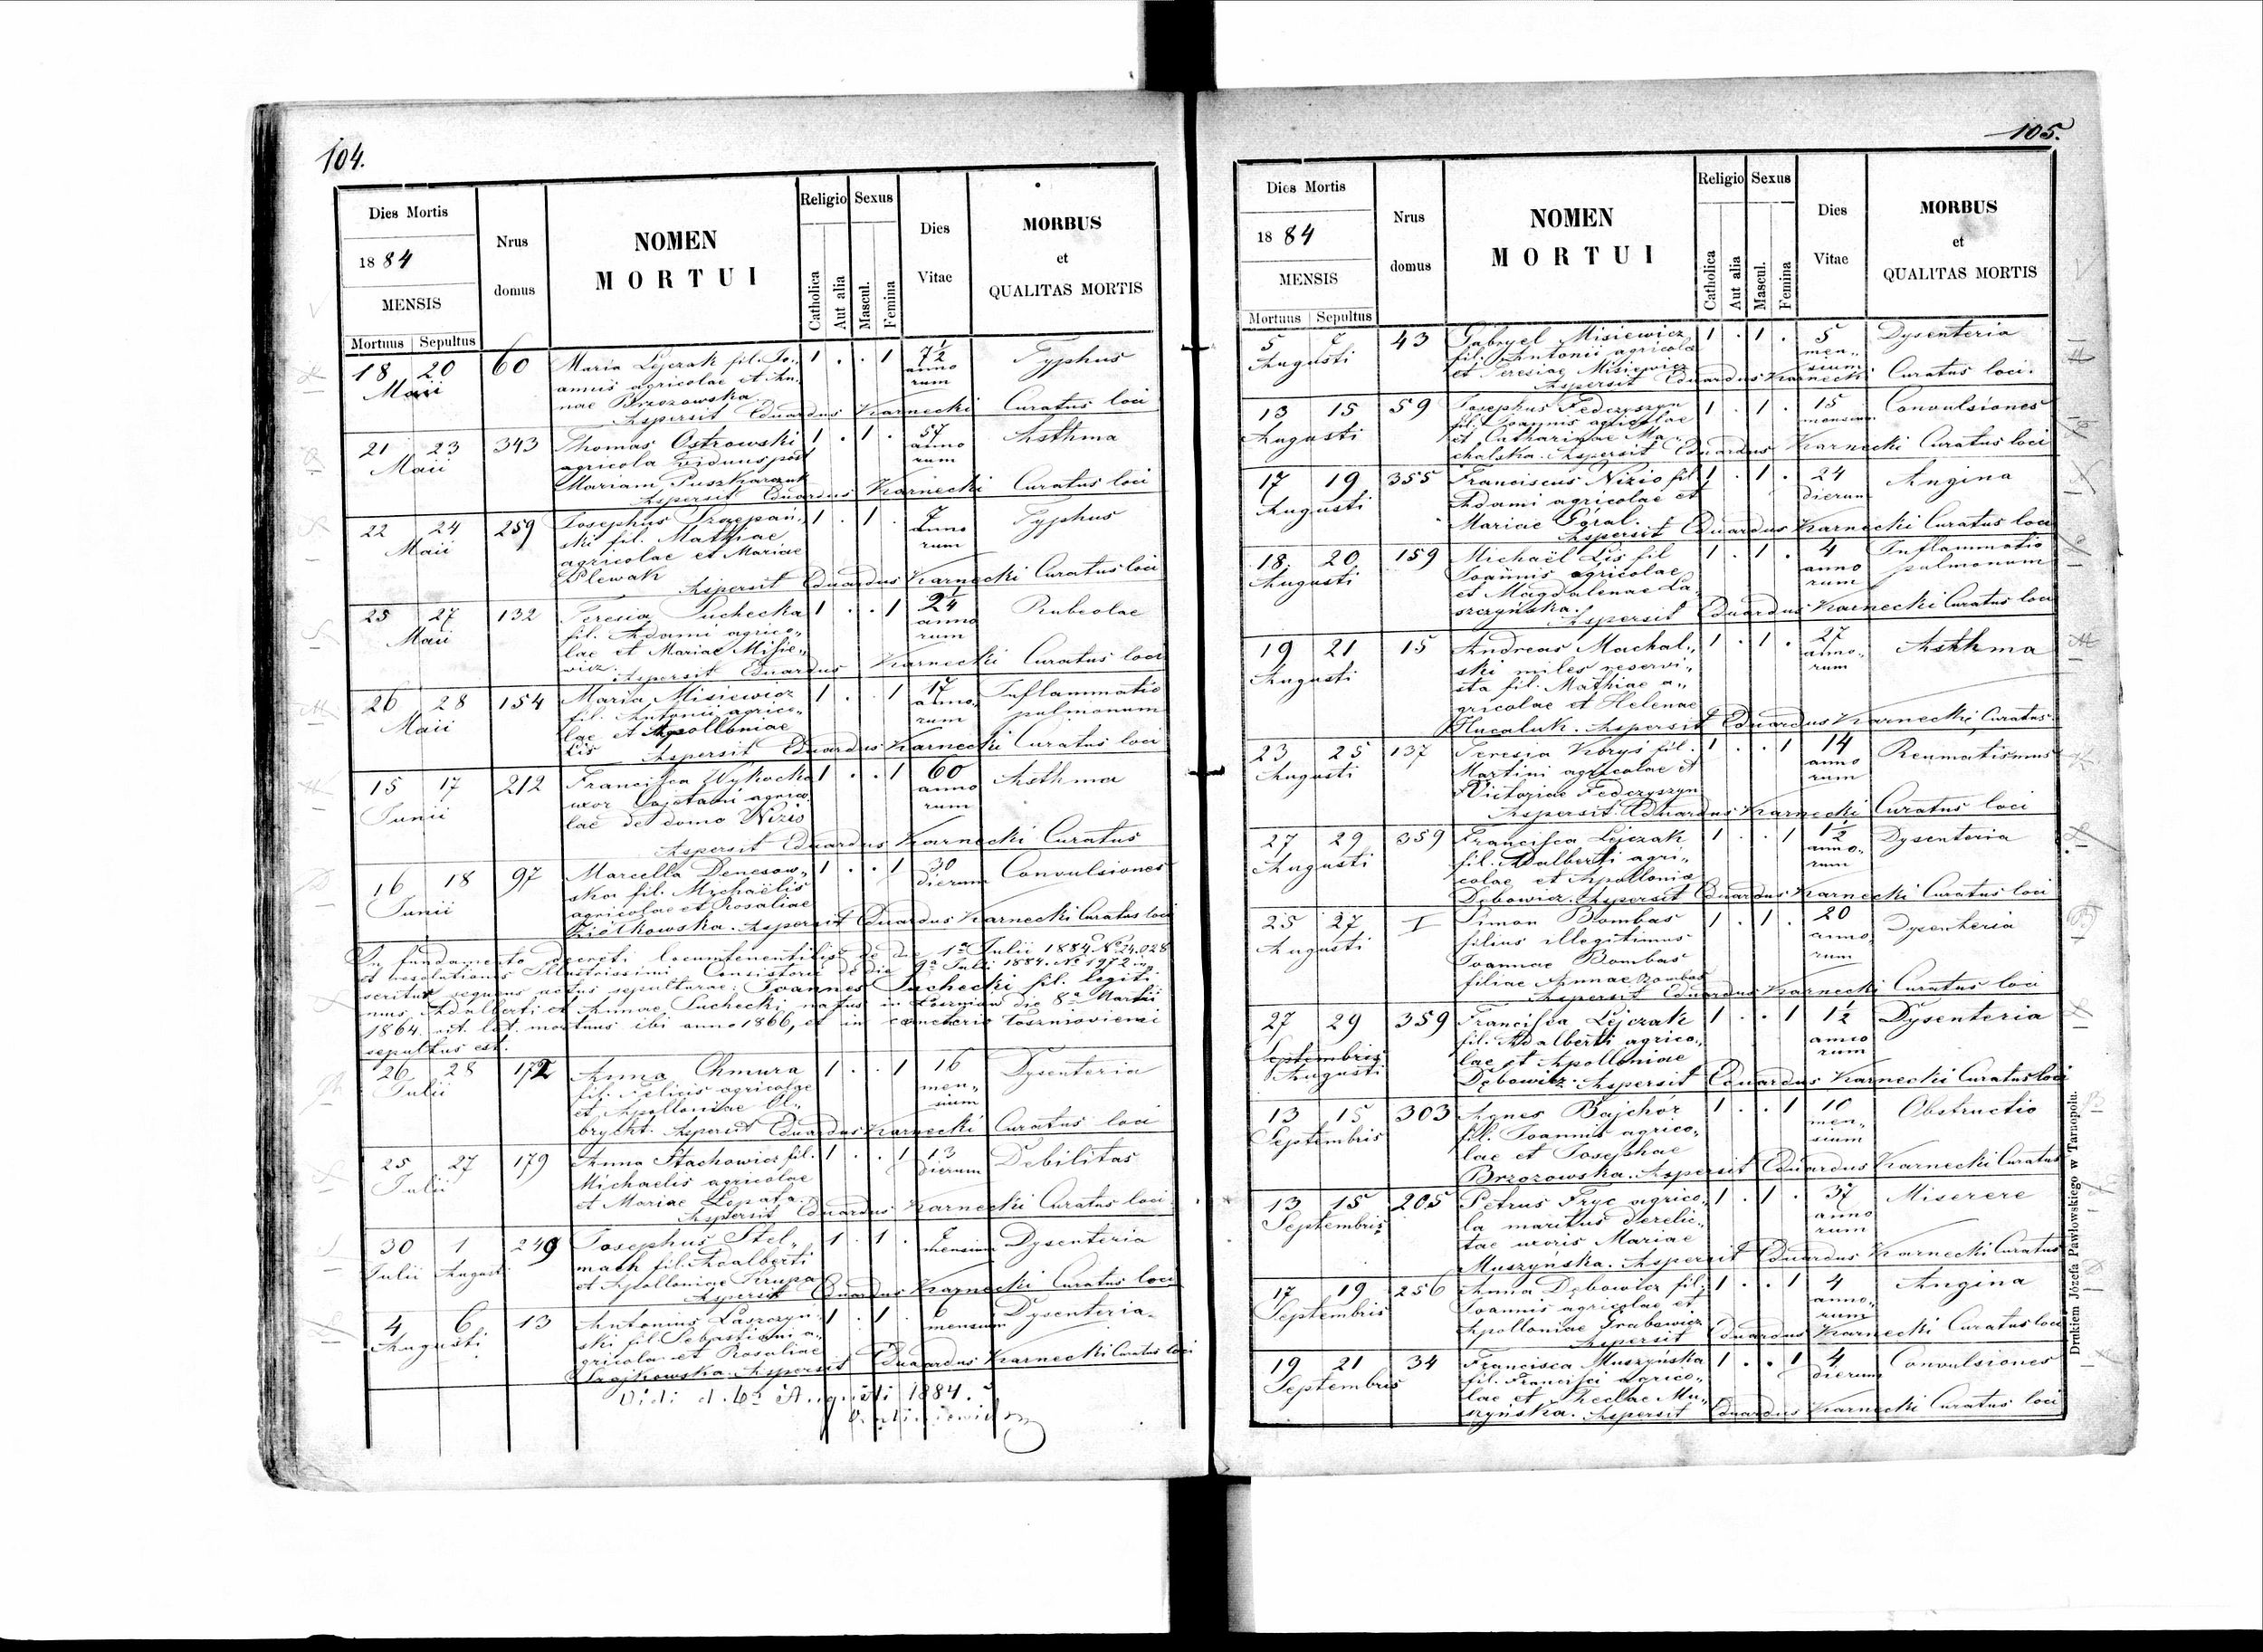 104.
Dies Mortis
1884
MENSIS
Mortuus Sepultus
Nrus
domus
NOMEN
MORTUI
Religio
Catholica
Aut alia
Sexus
Mascul.
Femina
Dies
Vitae
MORBUS
et
QUALITAS MORTIS
18 20 60 Maria Lejczak fil. Jo- 1 . . 1 7½ Typhus
Maii annis agricolae et An- anno
nae Brzozowska. rum
Aspersit Eduardus Karnecki Curatus loci
21 23 343 Thomas Ostrowski 1 . 1 . 57 Asthma
Maii agricola viduus post anno
Mariam Puszkarczuk rum
Aspersit Eduardus Karnecki Curatus loci
22 24 259 Josephus Szczepań- 1 . 1 . 7 Typhus
Maii ski fil. Mathiae anno
agricolae et Mariae rum
Plewak Aspersit Eduardus Karnecki Curatus loci
25 27 132 Teresia Suchecka 1 . . 1 2¼ Rubeolae
Maii fil. Adami agrico- anno
lae et Mariae Misie- rum
wicz. Aspersit Eduardus Karnecki Curatus loci
26 28 154 Maria Misiewicz 1 . . 1 17 Inflammatio
Maii fil. Antonii agrico- anno- pulmonum
lae et Apolloniae rum
Lis Aspersit Eduardus Karnecki Curatus loci
15 17 212 Francisca Wykocka 1 . . 1 60 Asthma
Junii uxor Cajetani agrico- anno
lae de domo Nizio rum
Aspersit Eduardus Karnecki Curatus
16 18 97 Marcella Denesow- 1 . . 1 30 Convulsiones
Junii ska fil. Mychaëlis dierum
agricolae et Rosaliae
Ziółkowska. Aspersit Eduardus Karnecki Curatus loci
In fundamento decreti locumtenentialis de die 1ª Julii 1884 № 24.028
et resolutionis Illustrissimi Consistorii de die 9ª Julii 1884. № 1972 in
seritur sequens actus sepulturae: Joannes Suchecki fil. legiti
mus Adalberti et Annae Suchecki natus in Łoszniów die 8ª Martii
1864. rit. lat. mortuus ibi anno 1866, et in coemeterio Łosznioviensi
sepultus est.
26 28 172 Anna Chmura 1 . . 1 16 Dysenteria
Julii fil. Felicis agricolae men-
et Apolloniae Ol- sium
brycht. Aspersit Eduardus Karnecki Curatus loci
25 27 179 Anna Stachowicz fil. 1 . . 1 13 Debilitas
Julii Michaelis agricolae dierum
et Mariae Łopata.
Aspersit Eduardus Karnecki Curatus loci
30 1 249 Josephus Stel- 1 . 1 . mensium Dysenteria
Julii Augusti mach fil. Adalberti
et Apolloniae Krupa
Aspersit Eduardus Karnecki Curatus loci
4 6 13 Antonius Łaszczyń- 1 . 1 . 6 Dysenteria
Augusti ski fil. Sebastiani a- mensium
gricolae et Rosaliae
Aspersit Eduardus Karnecki Curatus loci
Vidi d. 6ª Augusti 1884.
105.
Dies Mortis
1884
MENSIS
Mortuus Sepultus
Nrus
domus
NOMEN
MORTUI
Religio
Catholica
Aut alia
Sexus
Mascul.
Femina
Dies
Vitae
MORBUS
et
QUALITAS MORTIS
5 43 Gabryel Misiewicz 1 . 1 . 5 Dysenteria
Augusti fil. Antonii agricolae men-
et Teresiae Misiewicz sium
Aspersit Eduardus Karnecki Curatus loci.
13 15 59 Josephus Fedczyszyn 1 . 1 . 15 Convulsiones
Augusti fil. Joannis agricolae mensium
et Catharinae Ma-
chalska. Aspersit Eduardus Karnecki Curatus loci
17 19 355 Franciscus Nizio fil. 1 . 1 . 24 Angina
Augusti Adami agricolae et dierum
Mariae Góral.
Aspersit Eduardus Karnecki Curatus loci
18 20 159 Michaël Lis fil 1 . 1 . 4 Inflammatio
Augusti Joannis agricolae anno pulmonum
et Magdalenae Ła- rum
szczyńska. Aspersit Eduardus Karnecki Curatus loci
19 21 15 Andreas Machal- 1 . 1 . 27 Asthma
Augusti ski miles reservi- anno-
sta fil. Mathiae a- rum
gricolae et Helenae
Hucaluk. Aspersit Eduardus Karnecki Curatus
23 25 137 Teresia Kbryś fil. 1 . . 1 14 Reumatismus
Augusti Martini agricolae et anno
Victoriae Fedczyszyn rum
Aspersit Eduardus Karnecki Curatus loci
27 29 359 Francisca Lejczak 1 . . 1 1½ Dysenteria
Augusti fil. Adalberti agri- anno-
colae et Apolloniae rum
Dębowicz. Aspersit Eduardus Karnecki Curatus loci
25 27 I Simon Bombas 1 . 1 . 20 Dysenteria
Augusti filius illegitimus anno
Joannae Bombas rum
filiae Annae Bombas
Aspersit Eduardus Karnecki Curatus loci
27 29 359 Francisca Lejczak 1 . . 1 1½ Dysenteria
Septembris fil. Adalberti agrico- anno
Augusti lae et Apolloniae rum
Dębowicz. Aspersit Eduardus Karnecki Curatus loci
13 15 303 Agnes Bajchór 1 . . 1 10 Obstructio
Septembris fil. Joannis agrico- men-
lae et Josephae sium
Brzozowska. Aspersit Eduardus Karnecki Curatus
13 15 205 Petrus Fryc agrico- 1 . 1 . 37 Miserere
Septembris la maritus derelic- anno
tae uxoris Mariae rum
Muszyńska. Aspersit Eduardus Karnecki Curatus
17 19 256 Anna Dębowicz fil. 1 . . 1 4 Angina
Septembris Joannis agricolae et anno-
Apolloniae Grabowicz rum
Aspersit Eduardus Karnecki Curatus loci
19 21 34 Francisca Muszyńska 1 . . 1 4 Convulsiones
Septembris fil. Francisci agrico- dierum
lae et Theclae Mu-
szyńska. Aspersit Eduardus Karnecki Curatus loci
Drukiem Józefa Pawłowskiego w Tarnopolu.